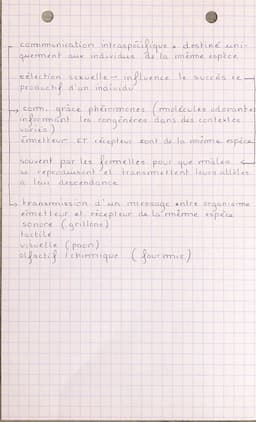 communication intraspécifique = destiné uni-
quement aux individus de la même espèce
sélection sexuelle → influence le succès re-
productif d'un individu
→ com. grâce phéromones (molécules odorantes
informant les congénères dans des contextes
variés)
émetteur ET récepteur sont de la même espèce
souvent par les femelles pour que mâles
se reproduisent et transmettent leurs allèles
à leur descendance
→ transmission d'un message entre organisme
émetteur et récepteur de la même espèce
sonore (grillons)
tactile
visuelle (paon)
olfactif / chimique (fourmis)